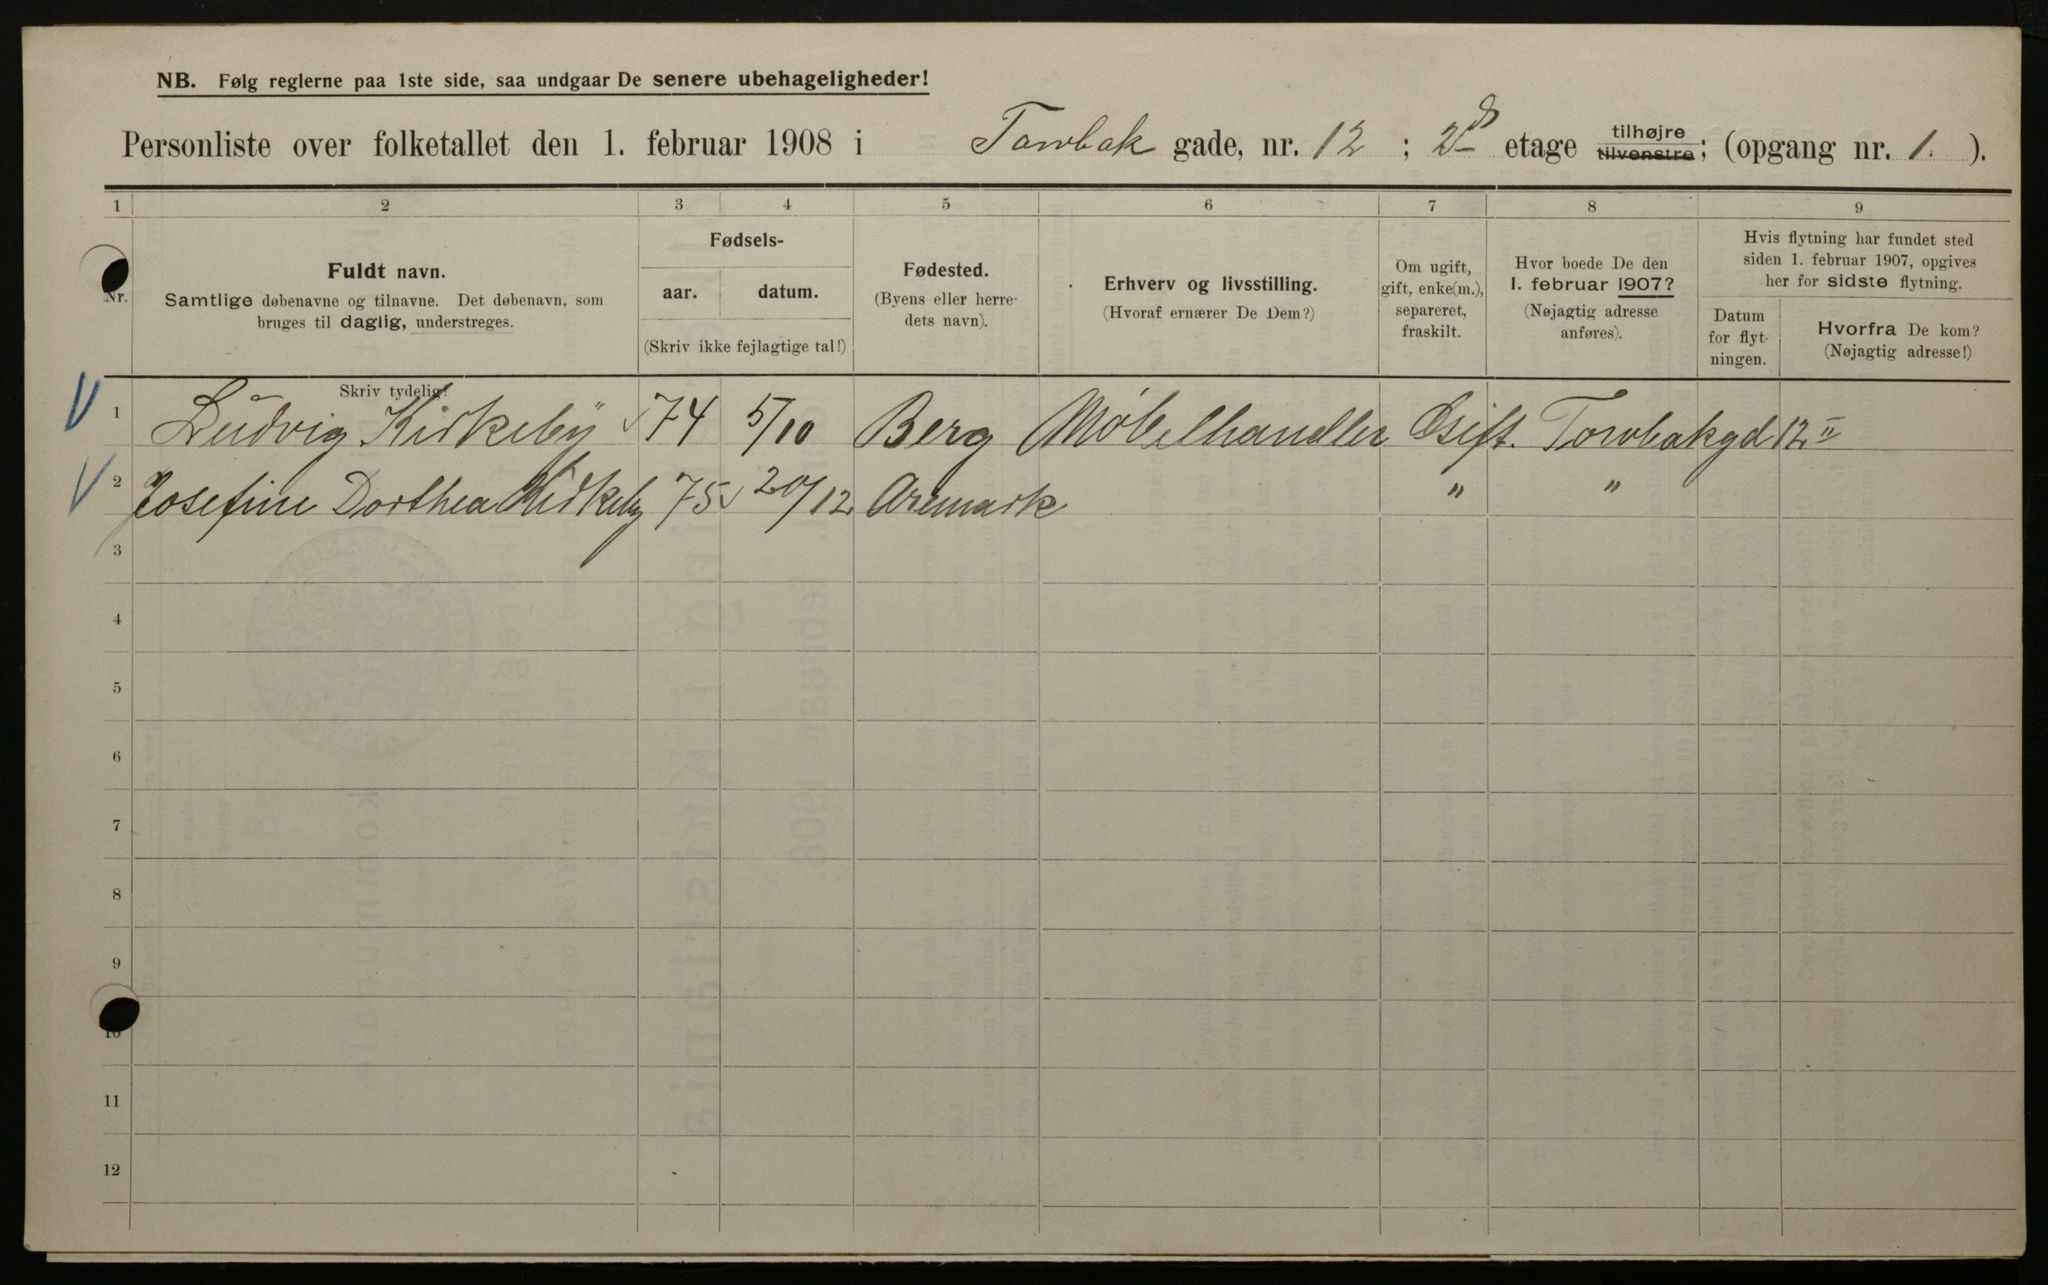 NB. Følg reglerne paa 1ste side, saa undgaar De senere ubehageligheder!
Personliste over folketallet den 1. februar 1908 i Torvbak gade, nr. 12 ; 2d etage tilhøjre tilvenstre; (opgang nr. 1. ).
1 2 3 4 5 6 7 8 9
Nr.
Fuldt navn.
Samtlige døbenavne og tilnavne. Det døbenavn, som
bruges til daglig, understreges.
Skriv tydelig!
Fødsels-
aar. datum.
(Skriv ikke fejlagtige tal!)
Fødested.
(Byens eller herre-
dets navn).
Erhverv og livsstilling.
(Hvoraf ernærer De Dem?)
Om ugift,
gift, enke(m.),
separeret,
fraskilt.
Hvor boede De den
1. februar 1907?
(Nøjagtig adresse
anføres).
Hvis flytning har fundet sted
siden 1. februar 1907, opgives
her for sidste flytning.
Datum
for flyt-
ningen.
Hvorfra De kom?
(Nøjagtig adresse!)
1 Ludvig Kirkeby 74 5/10 Berg Møbelhandler Gift. Torvbakgd 12 II
2 Josefine Dorthea Kirkeby 75 20/12 Aremark " "
3
4
5
6
7
8
9
10
11
12